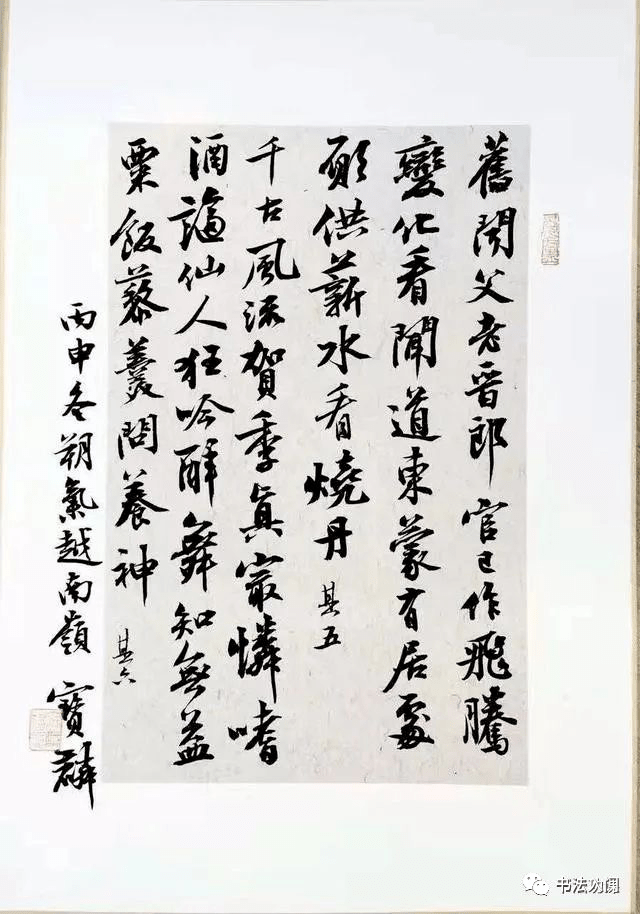 舊聞父老晉郎官已作飛騰
變化看聞道東蒙有居處
願供薪水看燒丹 其五
千古風流賀季真最憐嗜
酒謫仙人狂吟醉舞知無益
粟飯藜羹問養神 其六
丙申冬朔氣越南嶺 寶麟
书法功